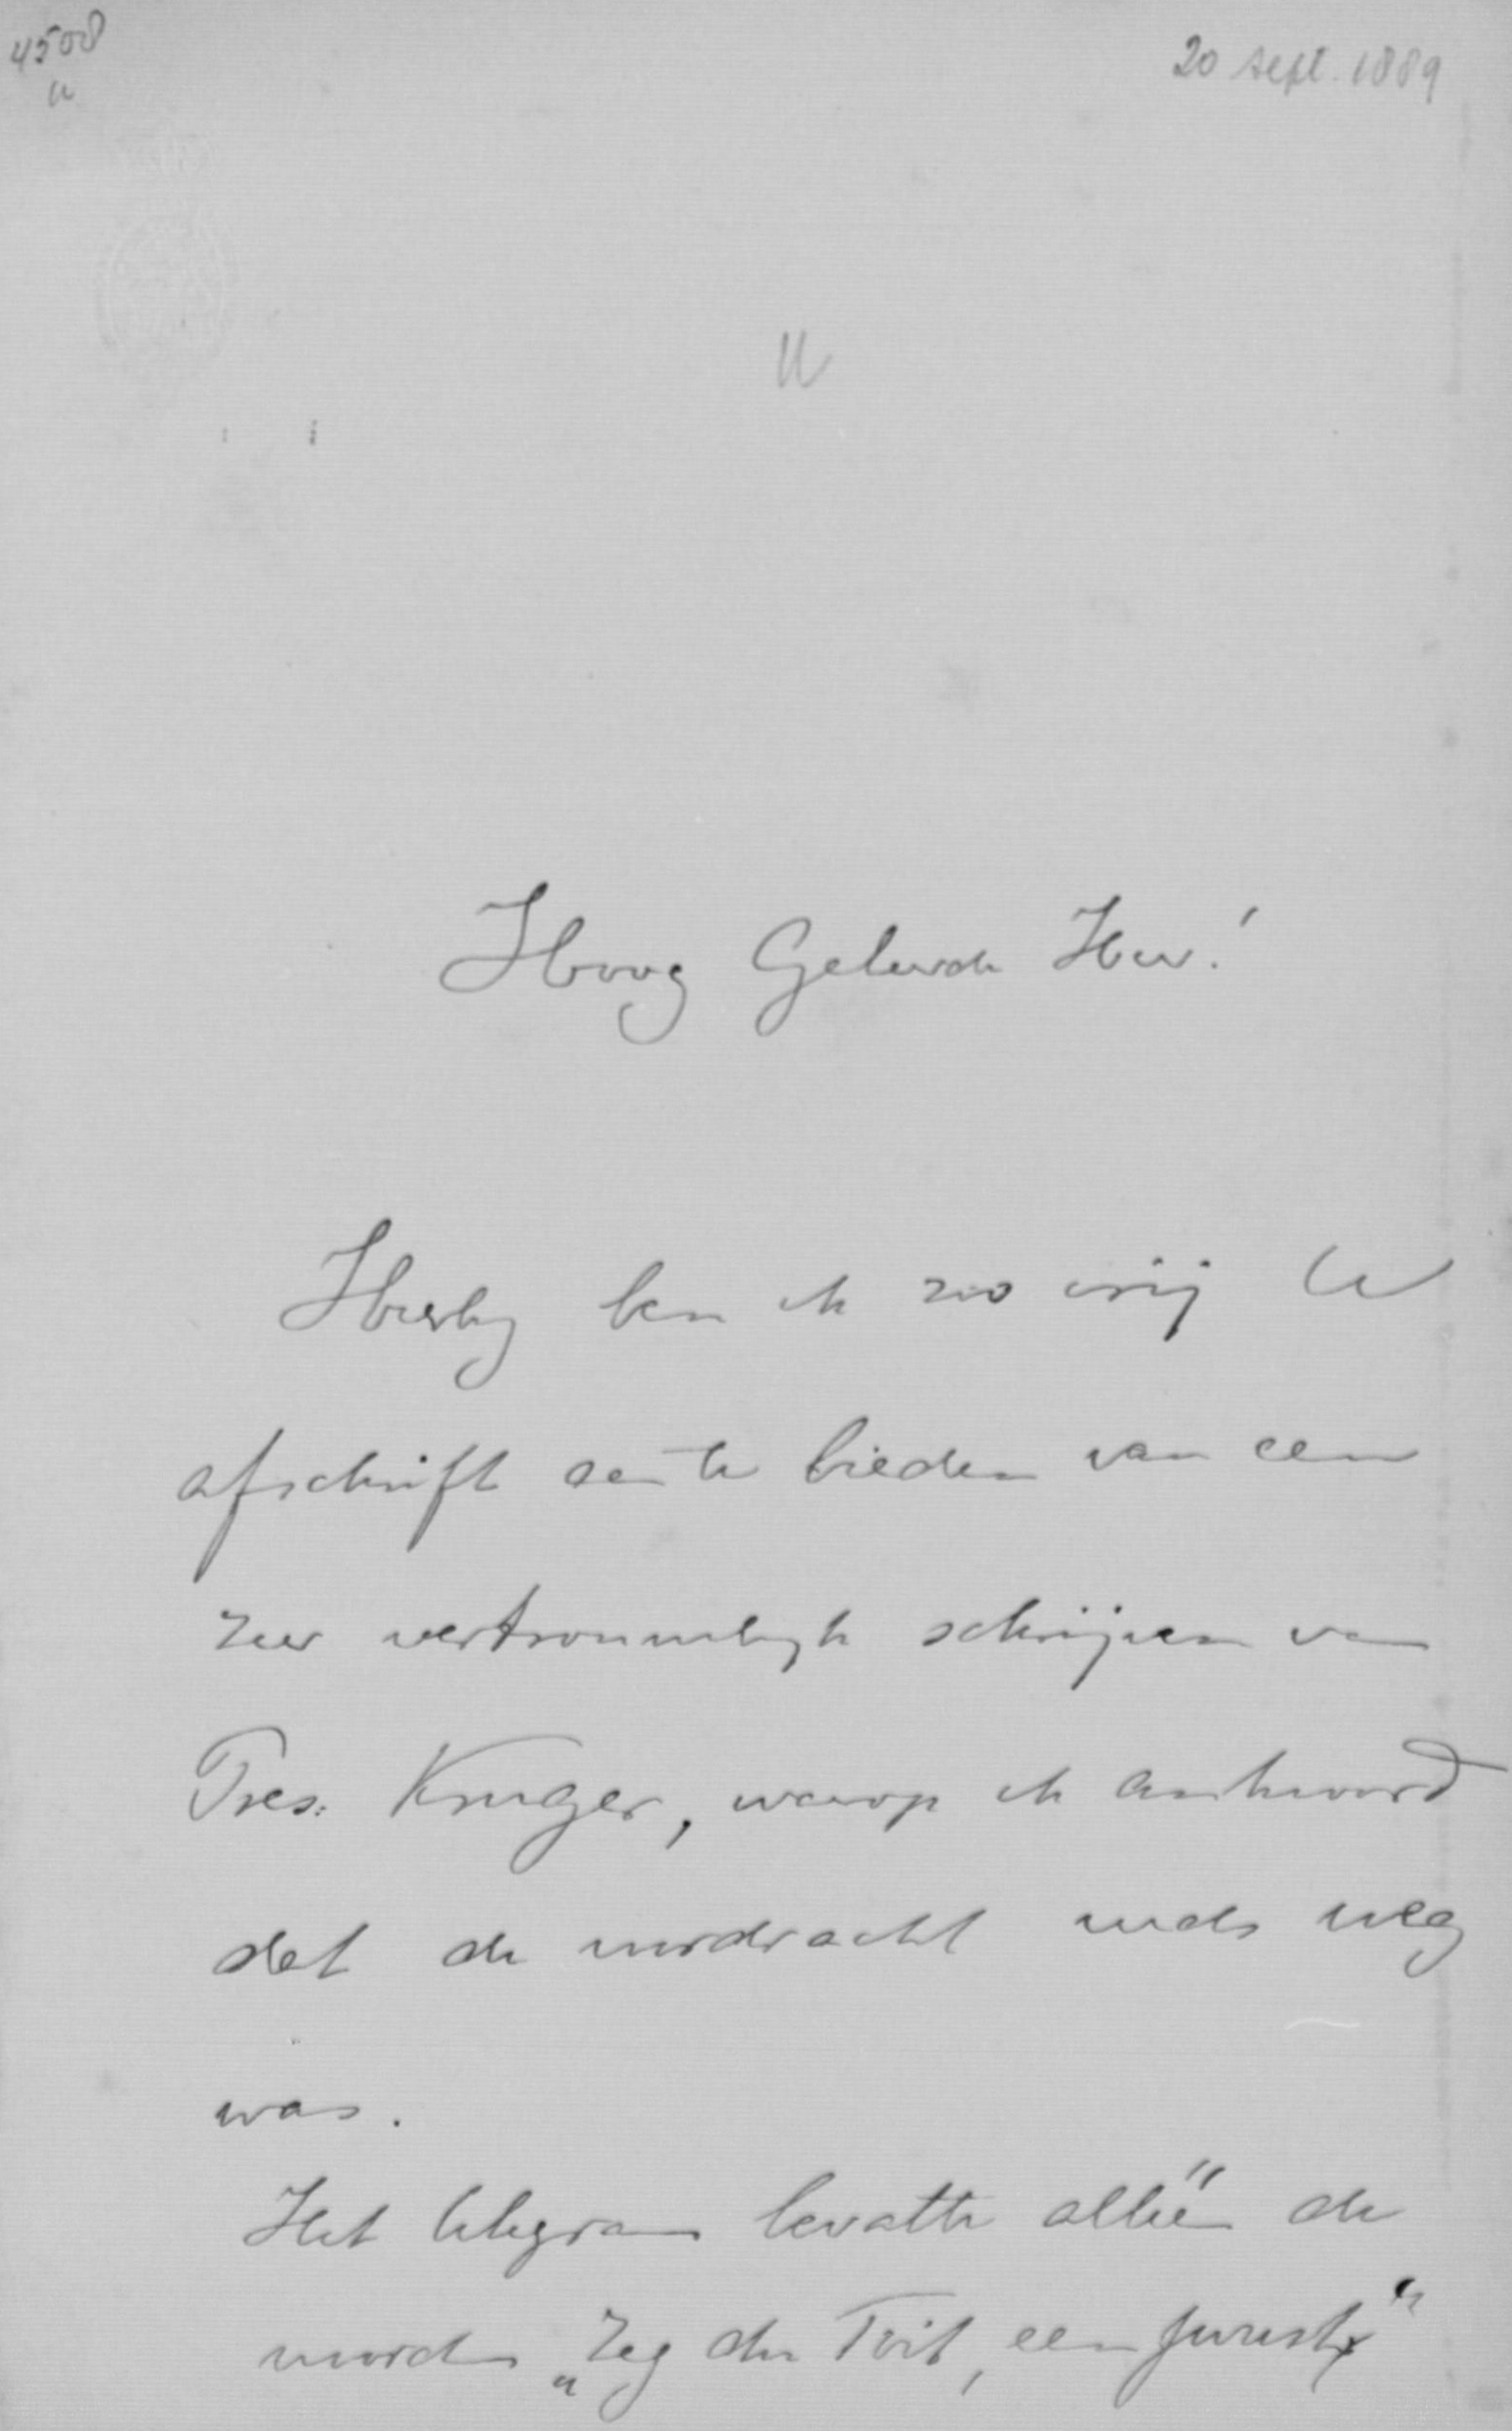 4508
20 Sept. 1889
Hoog Geleerde Heer!
Hierby ben ik zoo vrij U
afschrift aan te bieden van een
zeer vertrouwelyk schrijven van
Pres: Kruger, waarop ik antwoord
dat de voordracht reeds weg
was.
Het telegram bevatte alleen de
woorden „Zeg du Toit, een jurist"